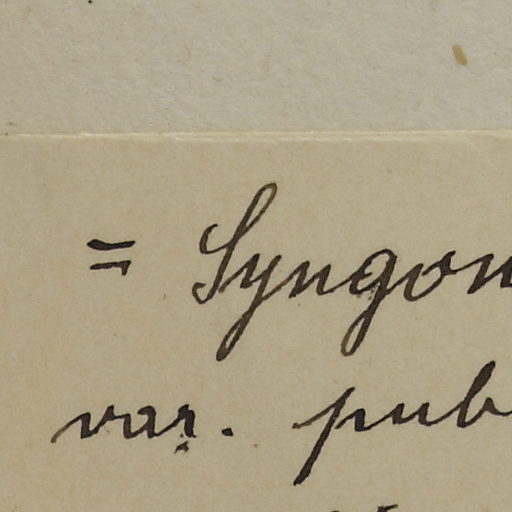 = Syngon
var. pub